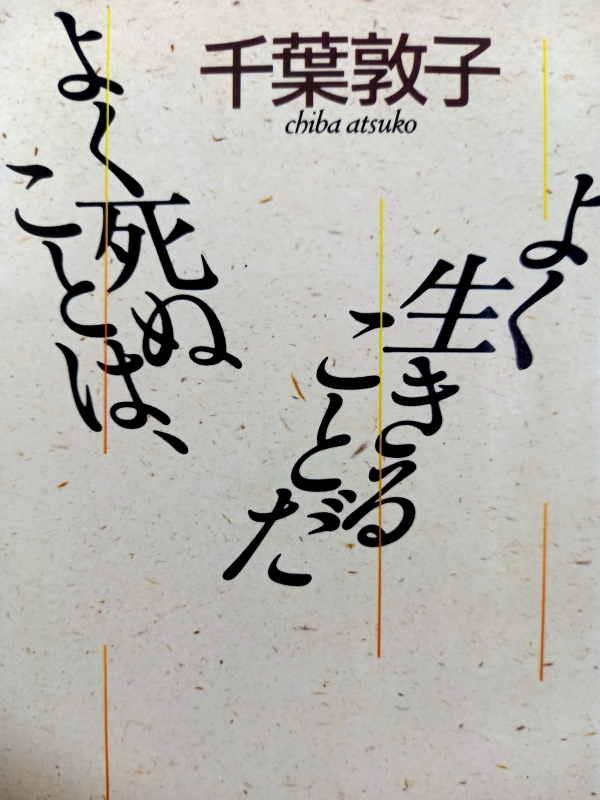 千葉敦子
chiba atsuko
よく
死ぬ
ことは、
よく
生きる
ことだ